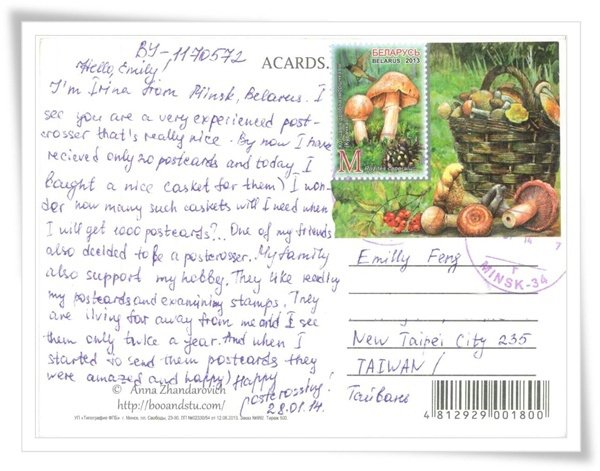 BY-1170572
Hello, Emily!
I'm Irina from Minsk, Belarus. I
see you are a very experienced post-
crosser that's really nice. By now I have
recieved only 20 postcards and today I
bought a nice casket for them) I won-
der how many such caskets will I need when
I will get 1000 postcards?.. One of my friends
also decided to be a postcrosser. My family
also support my hobby. They like reading
my postcards and examining stamps. They
are living far away from me and I see
them only twice a year. And when I
started to send them postcards they
were amazed and happy) Happy
postcrossing!
28.01.14.
© Anna Zhandarovich
http://booandstu.com/
ACARDS.
БЕЛАРУСЬ
BELARUS 2013
M
14
7
г
MINSK-34
Emilly Feng
New Taipei City 235
TAIWAN!
Тайвань
4812929001800
УП «Типография ФПБ» г. Минск, пл. Свободы, 23-90. ЛП №02330/54 от 12.08.2013. Заказ Тираж 500.